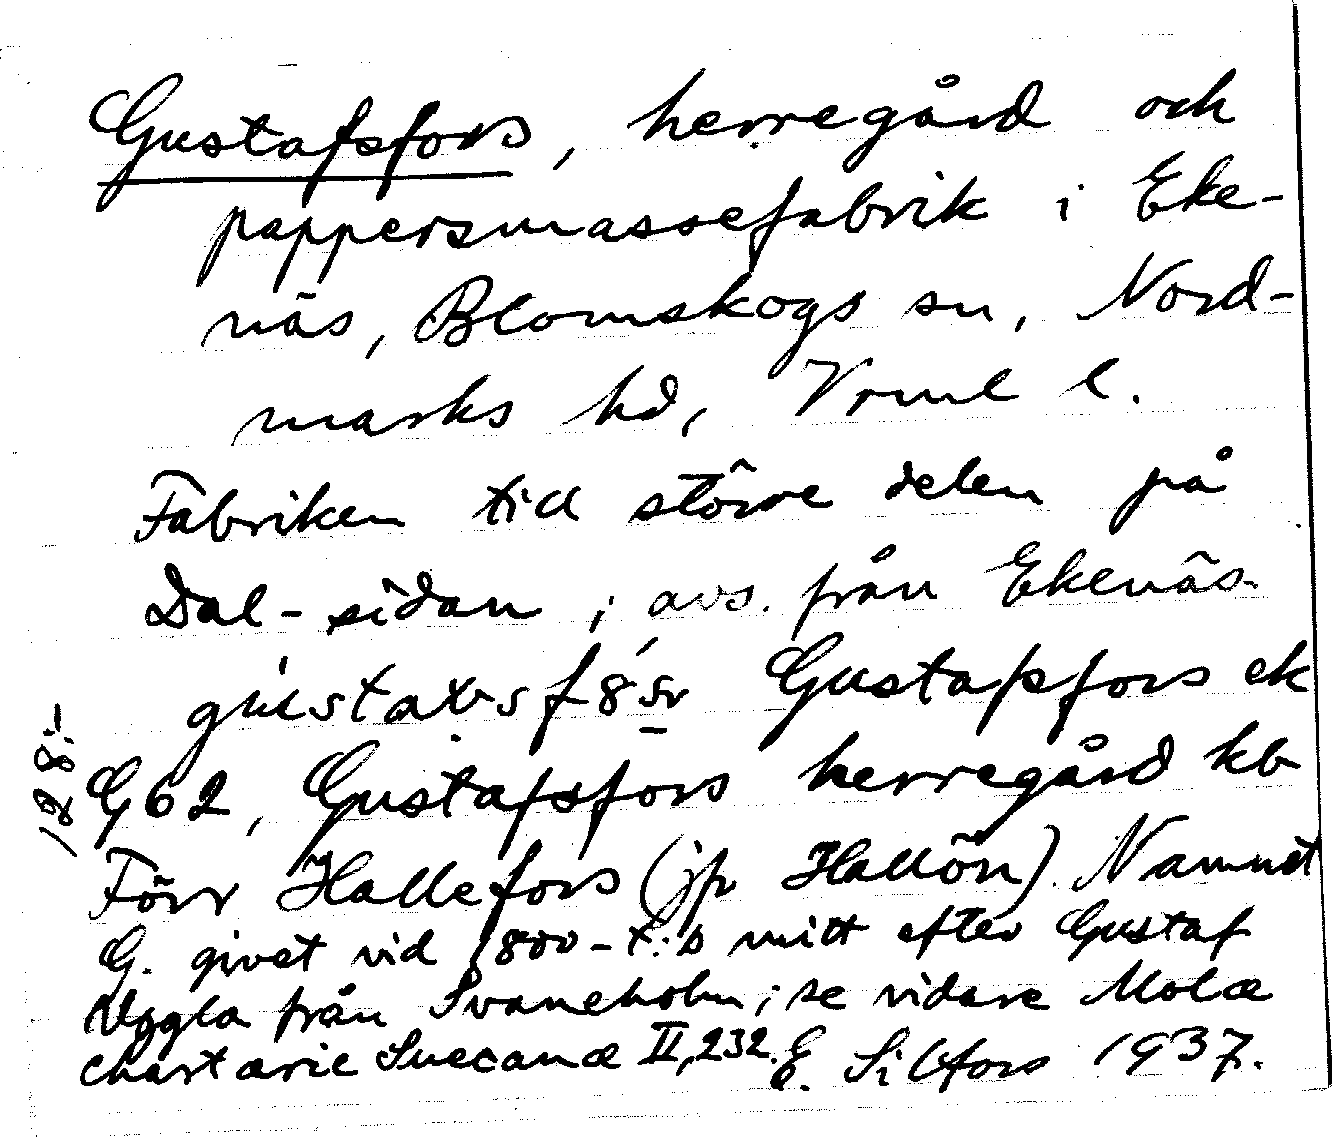 Gustafsfors, herregård och
pappersmassefabrik i Eke-
näs, Blomskogs sn, Nord-
marks hd, Vrml l.
Fabriken till större delen på
Dal-sidan; avs. från Ekenäs.
Gustafsfors ek
G62, Gustafsfors herregård kb
Förr Hallefors (jfr Hallön). Namnet
G. givet vid 1800-t:s mitt efter Gustaf
Uggla från Svaneholm; se vidare Molæ
chartariæ Suecanæ II, 232. E. Silfors 1937.
128:-